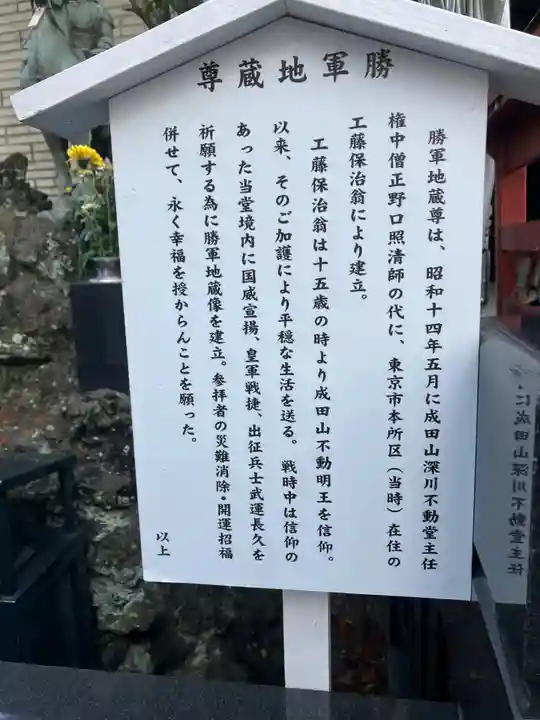 勝軍地蔵尊
勝軍地蔵尊は、昭和十四年五月に成田山深川不動堂主任
権中僧正野口照清師の代に、東京市本所区(当時)在住の
工藤保治翁により建立。
工藤保治翁は十五歳の時より成田山不動明王を信仰。
以来、そのご加護により平穏な生活を送る。戦時中は信仰の
あった当堂境内に国威宣揚、皇軍戦捷、出征兵士武運長久を
祈願する為に勝軍地蔵像を建立。参拝者の災難消除・開運招福
併せて、永く幸福を授からんことを願った。
以上
に成田山深川不動堂主任